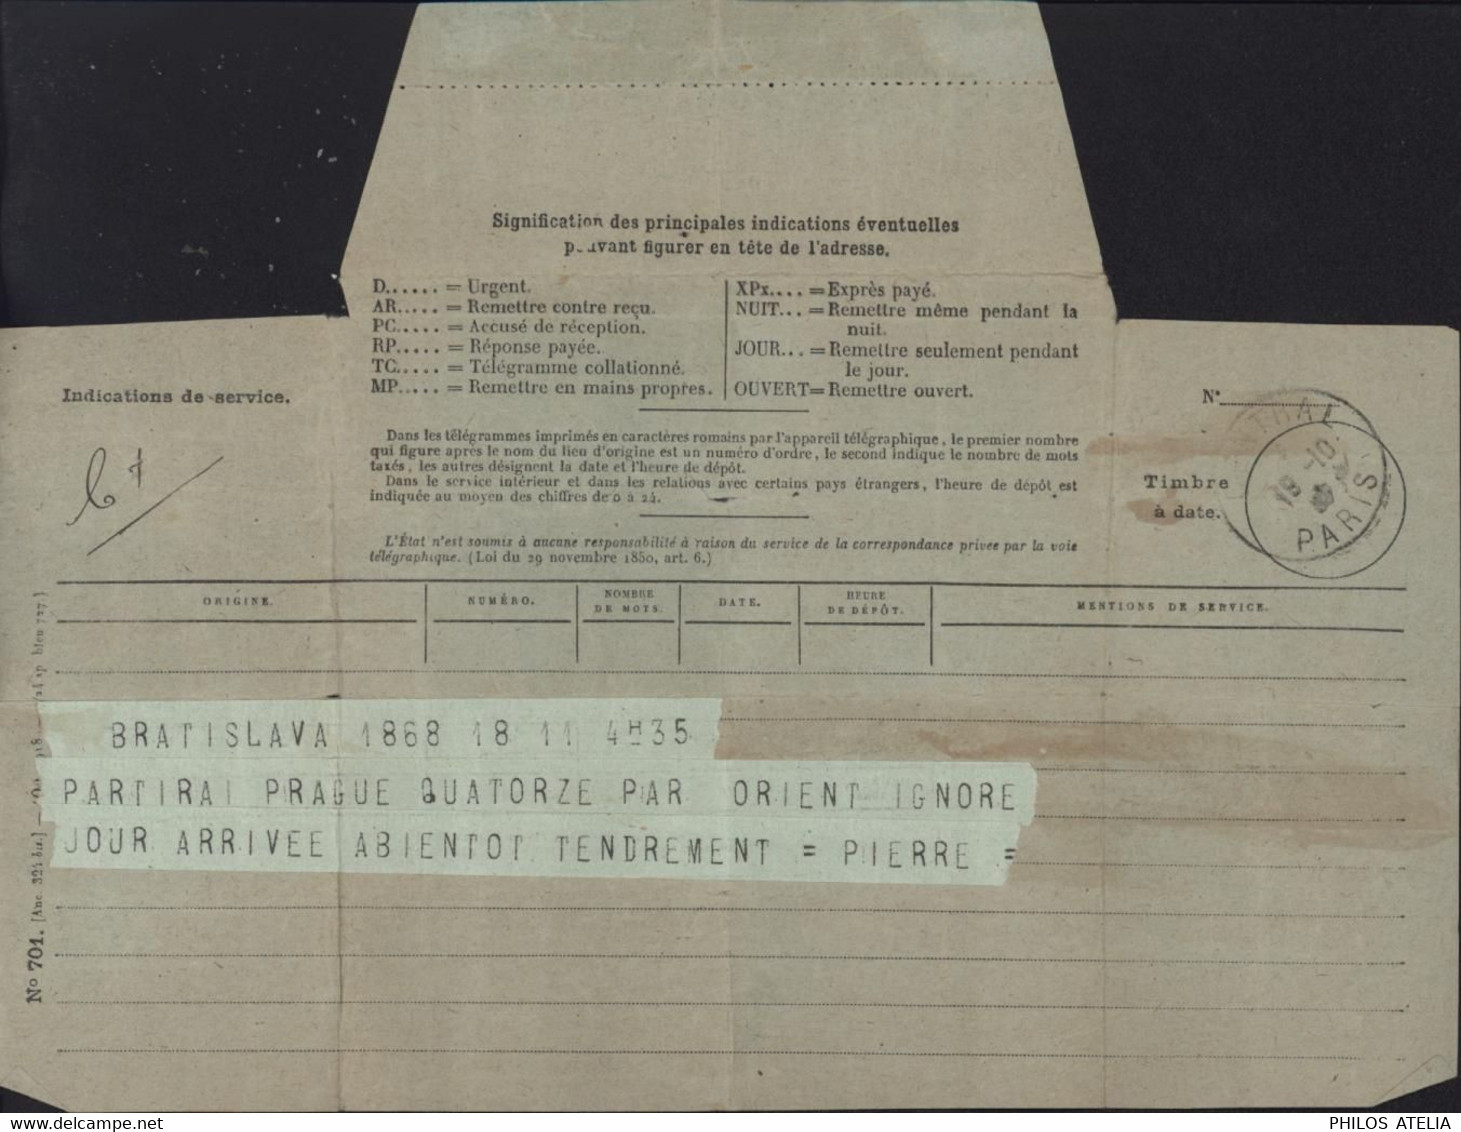 Signification des principales indications éventuelles
pouvant figurer en tête de l'adresse.
D...... = Urgent.
AR..... = Remettre contre reçu.
PC..... = Accusé de réception.
RP..... = Réponse payée.
TC..... = Télégramme collationné.
MP..... = Remettre en mains propres.
XPx.... = Exprès payé.
NUIT... = Remettre même pendant la
nuit.
JOUR... = Remettre seulement pendant
le jour.
OUVERT= Remettre ouvert.
Indications de service.
N°
Dans les télégrammes imprimés en caractères romains par l'appareil télégraphique, le premier nombre
qui figure après le nom du lieu d'origine est un numéro d'ordre, le second indique le nombre de mots
taxés, les autres désignent la date et l'heure de dépôt.
Dans le service intérieur et dans les relations avec certains pays étrangers, l'heure de dépôt est
indiquée au moyen des chiffres de 0 à 24.
Timbre
à date.
19 -10
PARIS
L'État n'est soumis à aucune responsabilité à raison du service de la correspondance privée par la voie
télégraphique. (Loi du 29 novembre 1850, art. 6.)
ORIGINE.
NUMÉRO.
NOMBRE
DE MOTS.
DATE.
HEURE
DE DÉPÔT.
MENTIONS DE SERVICE.
BRATISLAVA 1868 18 11 4H35
PARTIRAI PRAGUE QUATORZE PAR ORIENT IGNORE
JOUR ARRIVEE ABIENTOT TENDREMENT = PIERRE =
N° 701. [Anc 324 bis.]
PHILOS ATELIA